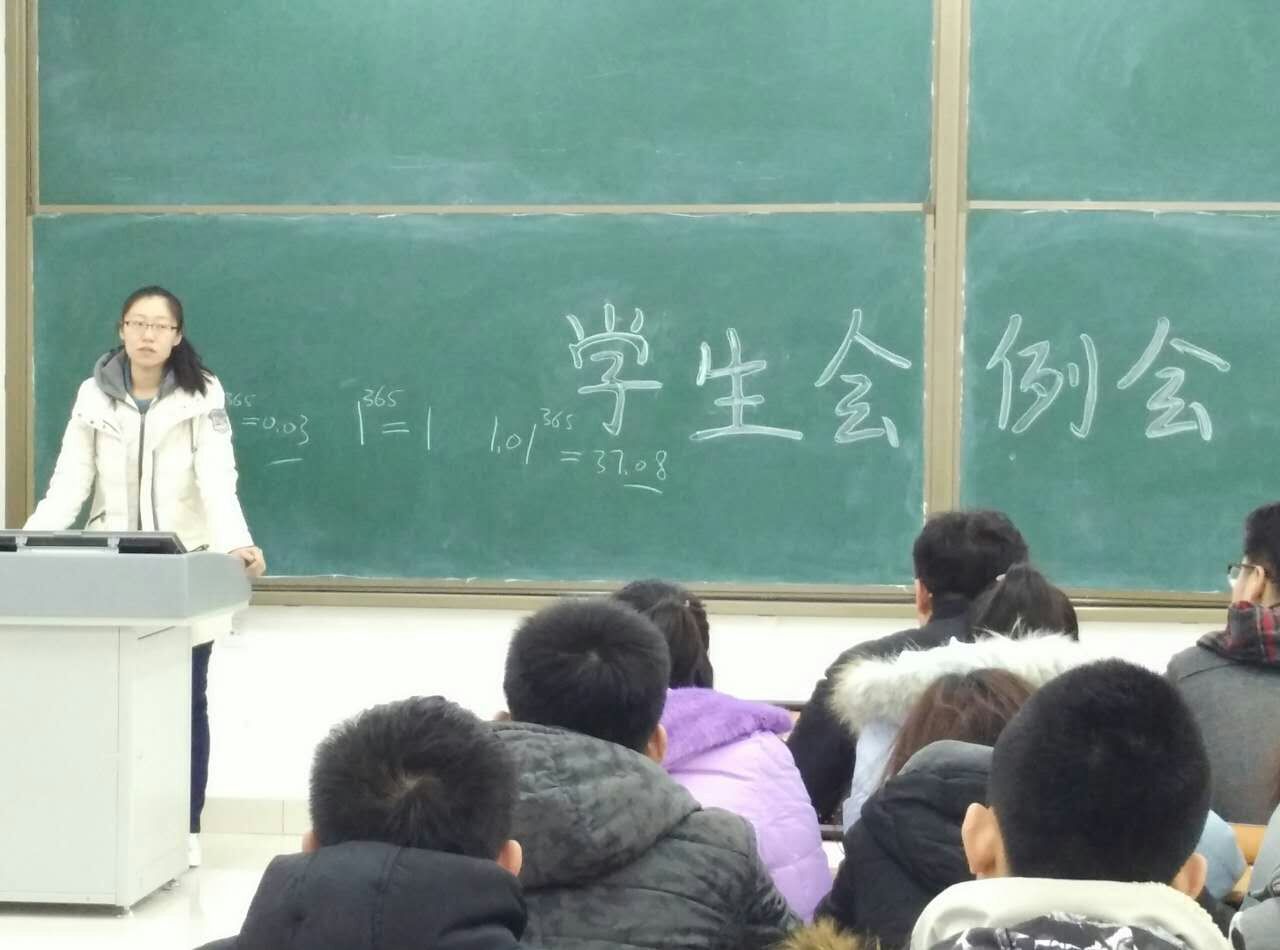 学生会例会
365 =0.03 1^365=1 1.01^365=37.08